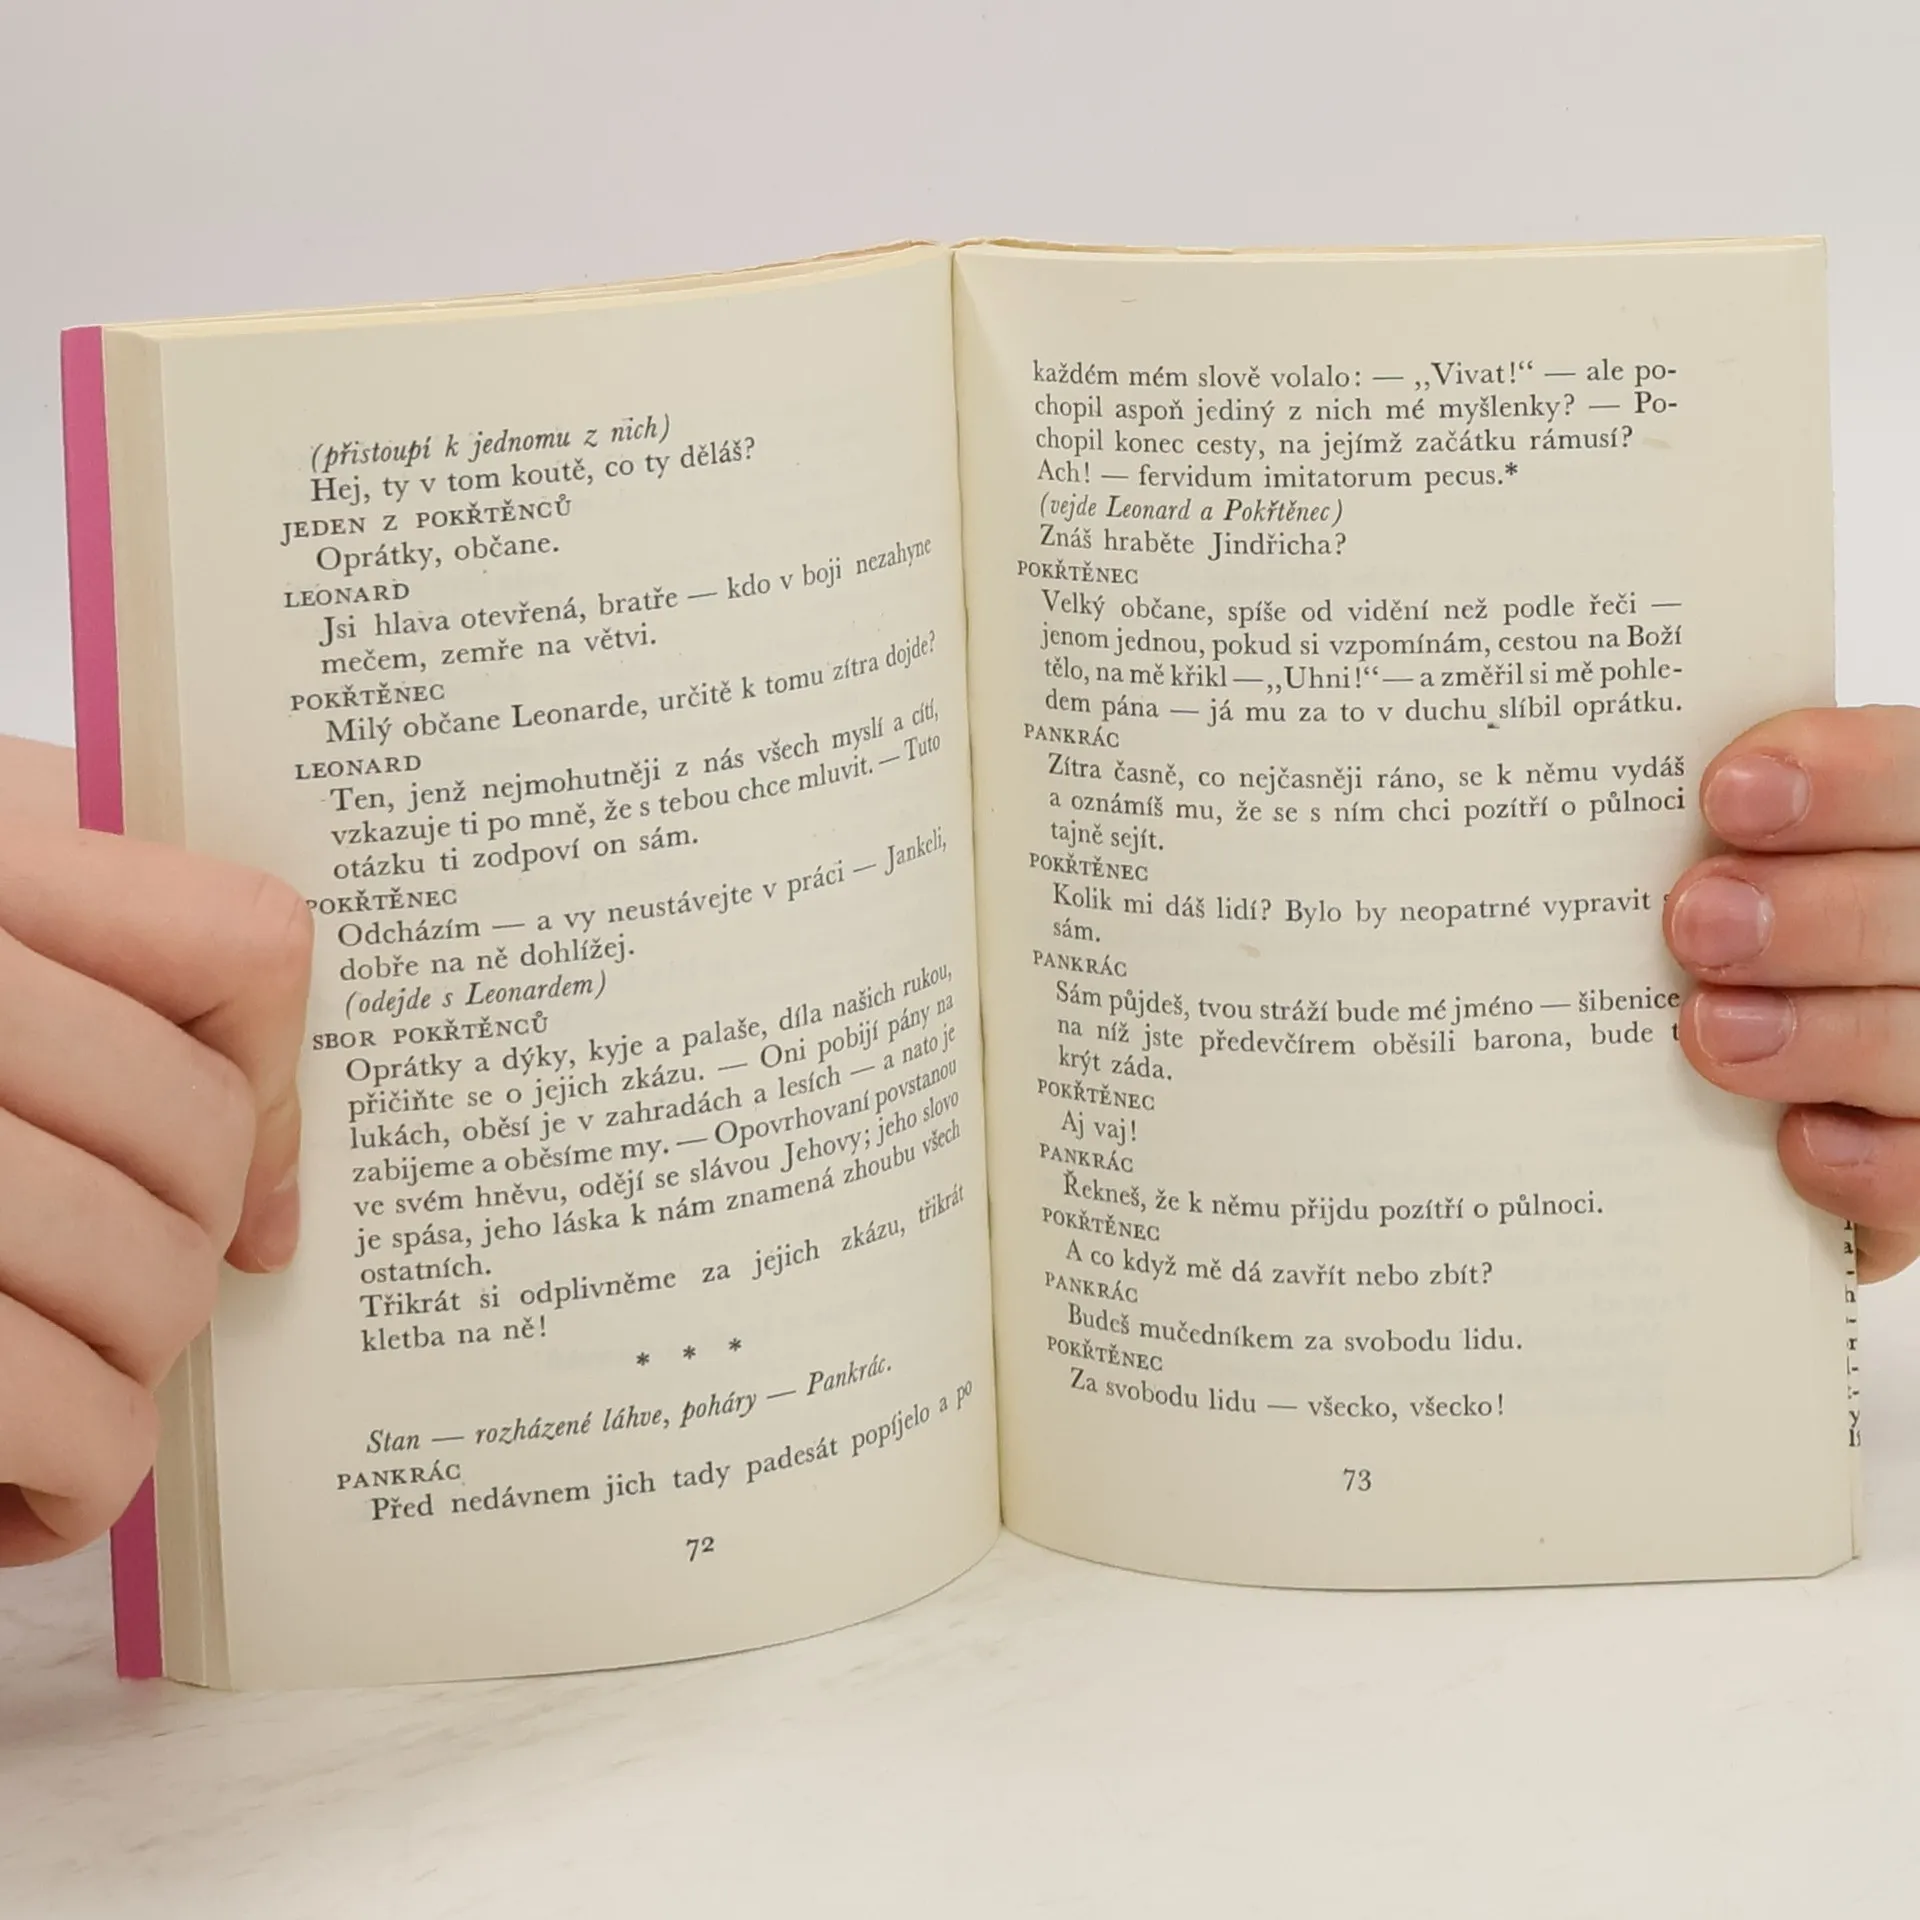 (přistoupí k jednomu z nich)
Hej, ty v tom koutě, co ty děláš?
JEDEN Z POKŘTĚNCŮ
Oprátky, občane.
LEONARD
Jsi hlava otevřená, bratře — kdo v boji nezahyne
mečem, zemře na větvi.
POKŘTĚNEC
Milý občane Leonarde, určitě k tomu zítra dojde?
LEONARD
Ten, jenž nejmohutněji z nás všech myslí a cítí,
vzkazuje ti po mně, že s tebou chce mluvit. — Tuto
otázku ti zodpoví on sám.
POKŘTĚNEC
Odcházím — a vy neustávejte v práci — Jankeli,
dobře na ně dohlížej.
(odejde s Leonardem)
SBOR POKŘTĚNCŮ
Oprátky a dýky, kyje a palaše, díla našich rukou,
přičiňte se o jejich zkázu. — Oni pobijí pány na
lukách, oběsí je v zahradách a lesích — a nato je
zabijeme a oběsíme my. — Opovrhovaní povstanou
ve svém hněvu, odějí se slávou Jehovy; jeho slovo
je spása, jeho láska k nám znamená zhoubu všech
ostatních.
Třikrát si odplivněme za jejich zkázu, třikrát
kletba na ně!
* * *
Stan — rozházené láhve, poháry — Pankrác.
PANKRÁC
Před nedávnem jich tady padesát popíjelo a po
72
každém mém slově volalo: — „Vivat!“ — ale po-
chopil aspoň jediný z nich mé myšlenky? — Po-
chopil konec cesty, na jejímž začátku rámusí?
Ach! — fervidum imitatorum pecus.*
(vejde Leonard a Pokřtěnec)
Znáš hraběte Jindřicha?
POKŘTĚNEC
Velký občane, spíše od vidění než podle řeči —
jenom jednou, pokud si vzpomínám, cestou na Boží
tělo, na mě křikl — „Uhni!“ — a změřil si mě pohle-
dem pána — já mu za to v duchu slíbil oprátku.
PANKRÁC
Zítra časně, co nejčasněji ráno, se k němu vydáš
a oznámíš mu, že se s ním chci pozítří o půlnoci
tajně sejít.
POKŘTĚNEC
Kolik mi dáš lidí? Bylo by neopatrné vypravit
sám.
PANKRÁC
Sám půjdeš, tvou stráží bude mé jméno — šibenice
na níž jste předevčírem oběsili barona, bude
krýt záda.
POKŘTĚNEC
Aj vaj!
PANKRÁC
Řekneš, že k němu přijdu pozítří o půlnoci.
POKŘTĚNEC
A co když mě dá zavřít nebo zbít?
PANKRÁC
Budeš mučedníkem za svobodu lidu.
POKŘTĚNEC
Za svobodu lidu — všecko, všecko!
73